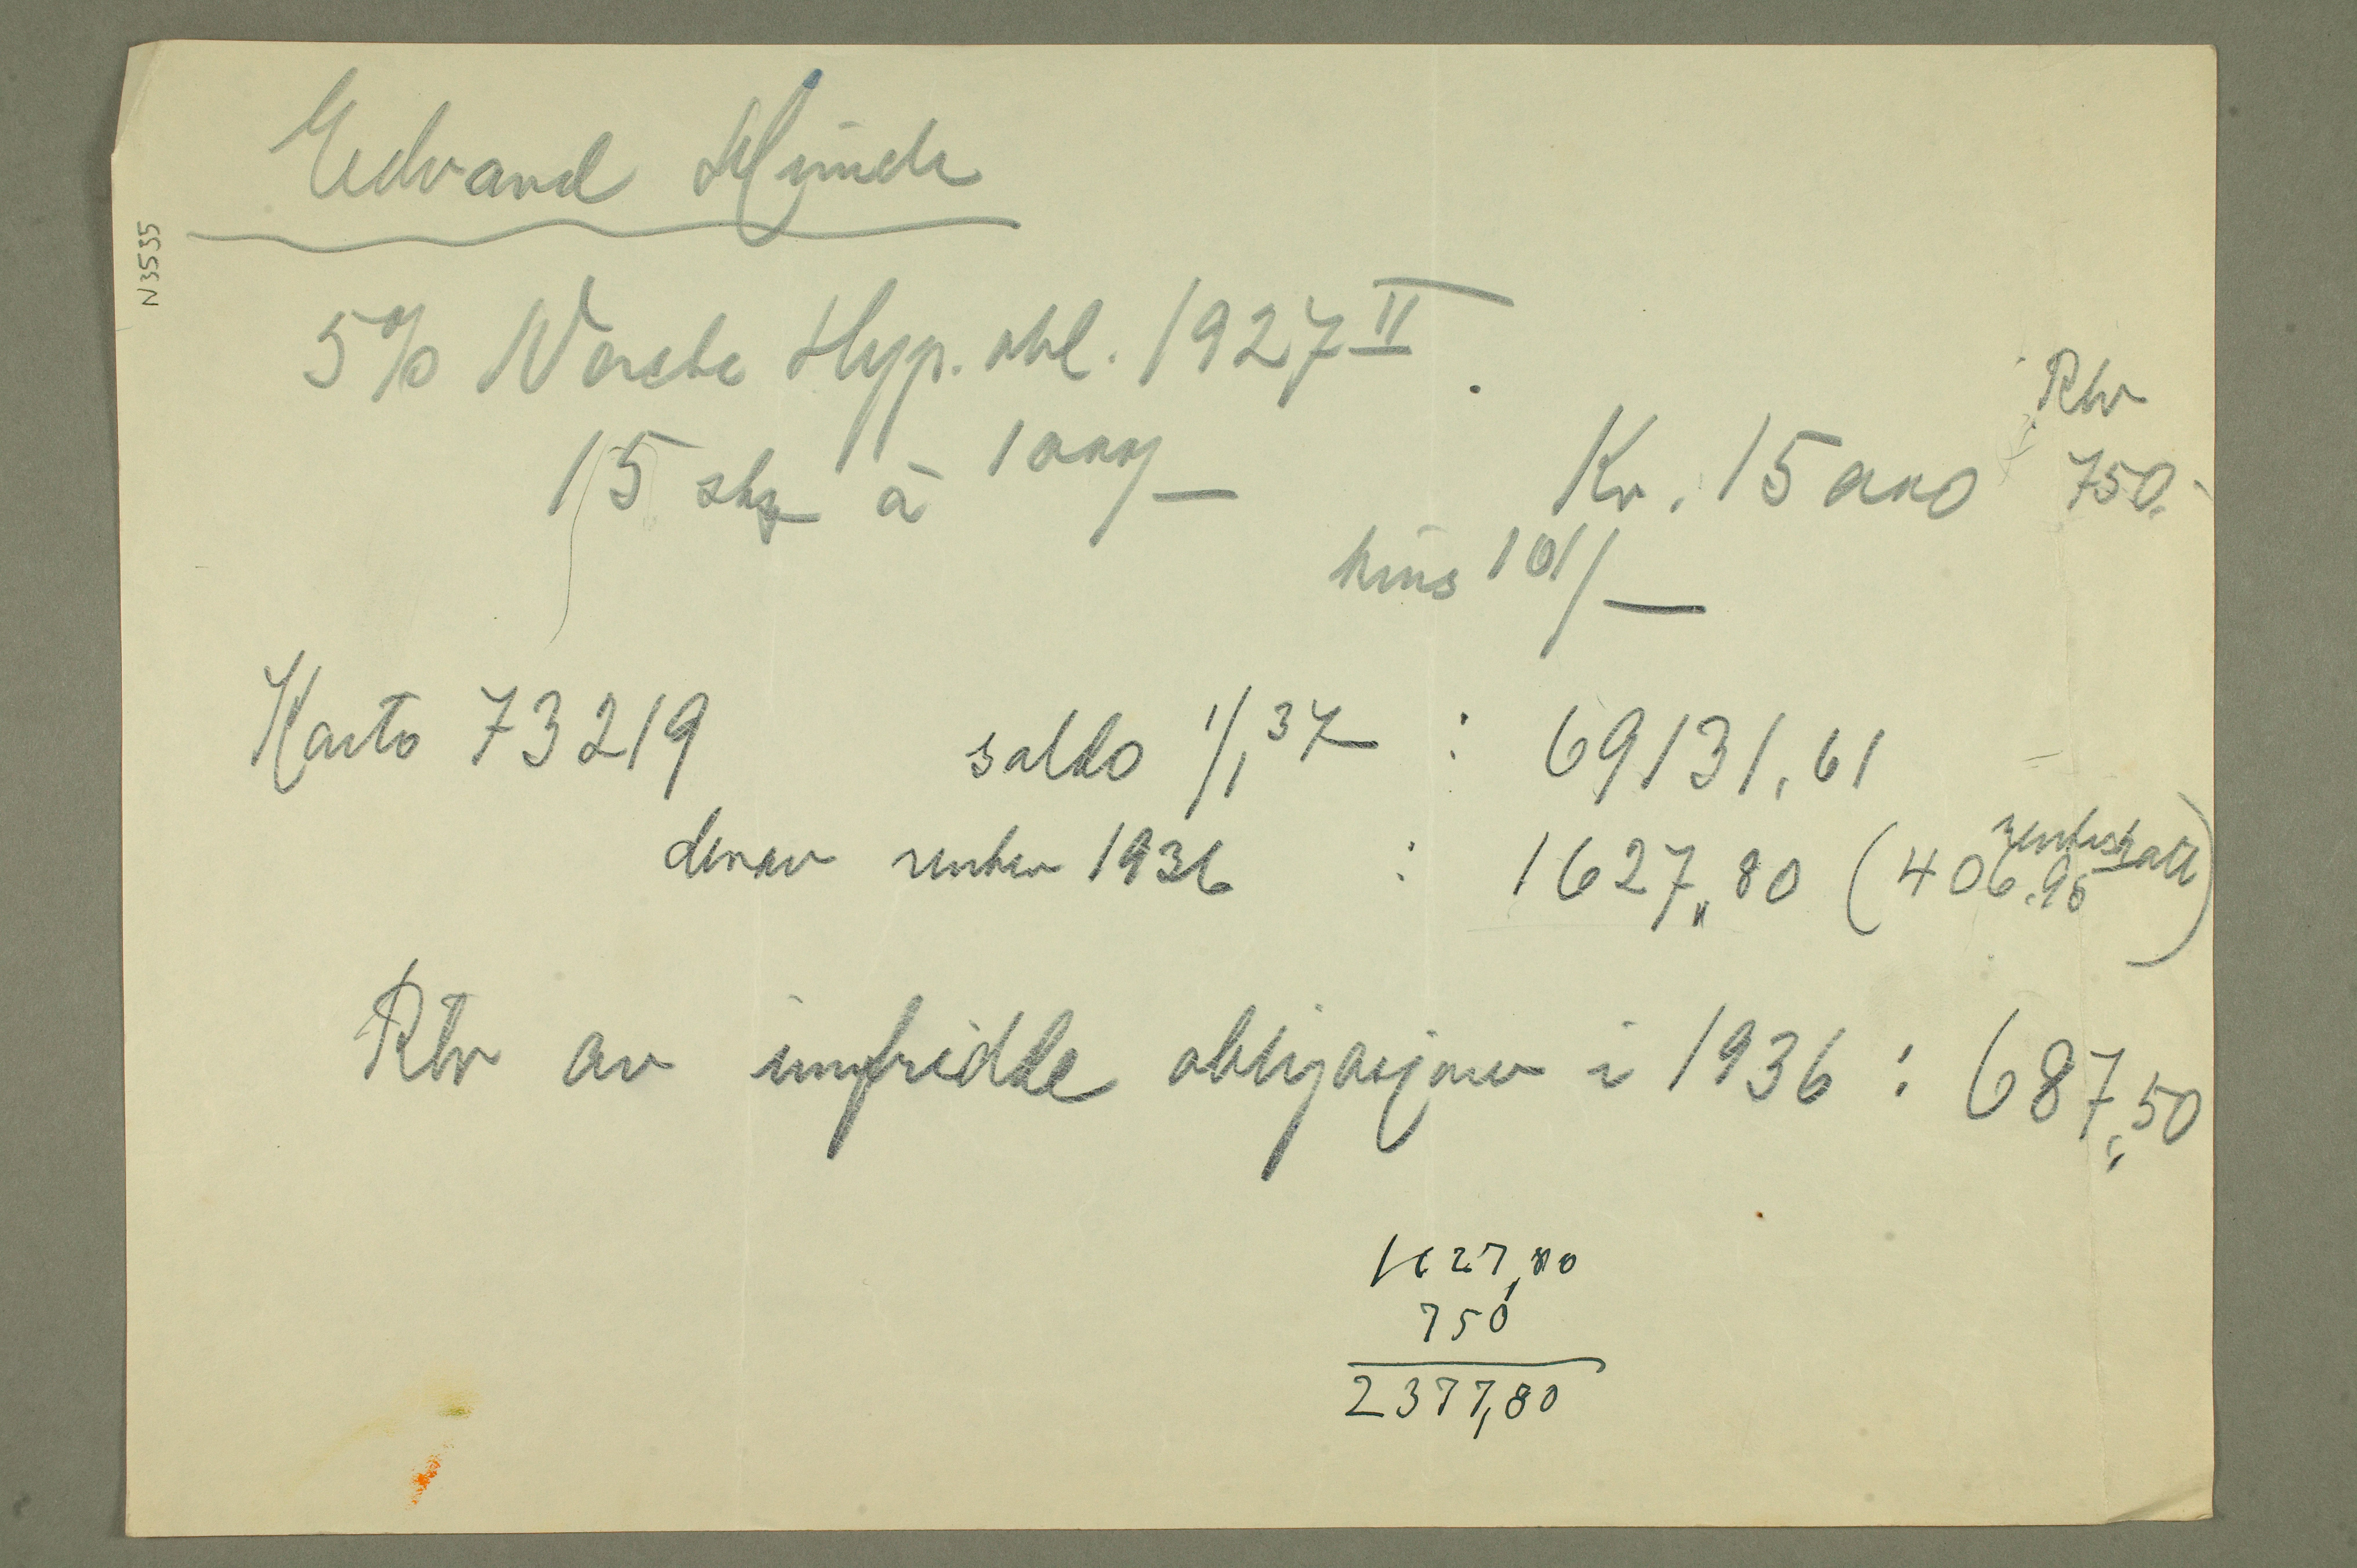 Edvard Munch
N3535
5% Norske Hyp. obl. 1927 II.
Rtr
15 stk à 1000/— Kr. 15000 750.-
kurs 101/—
Konto 73219 saldo 1/1 37 : 69131,61
derav renter 1936 : 1627,80 (406.95 renteskatt)
Rtr av innfridde obligasjoner i 1936 : 687,50
1627,80
750
2377,80